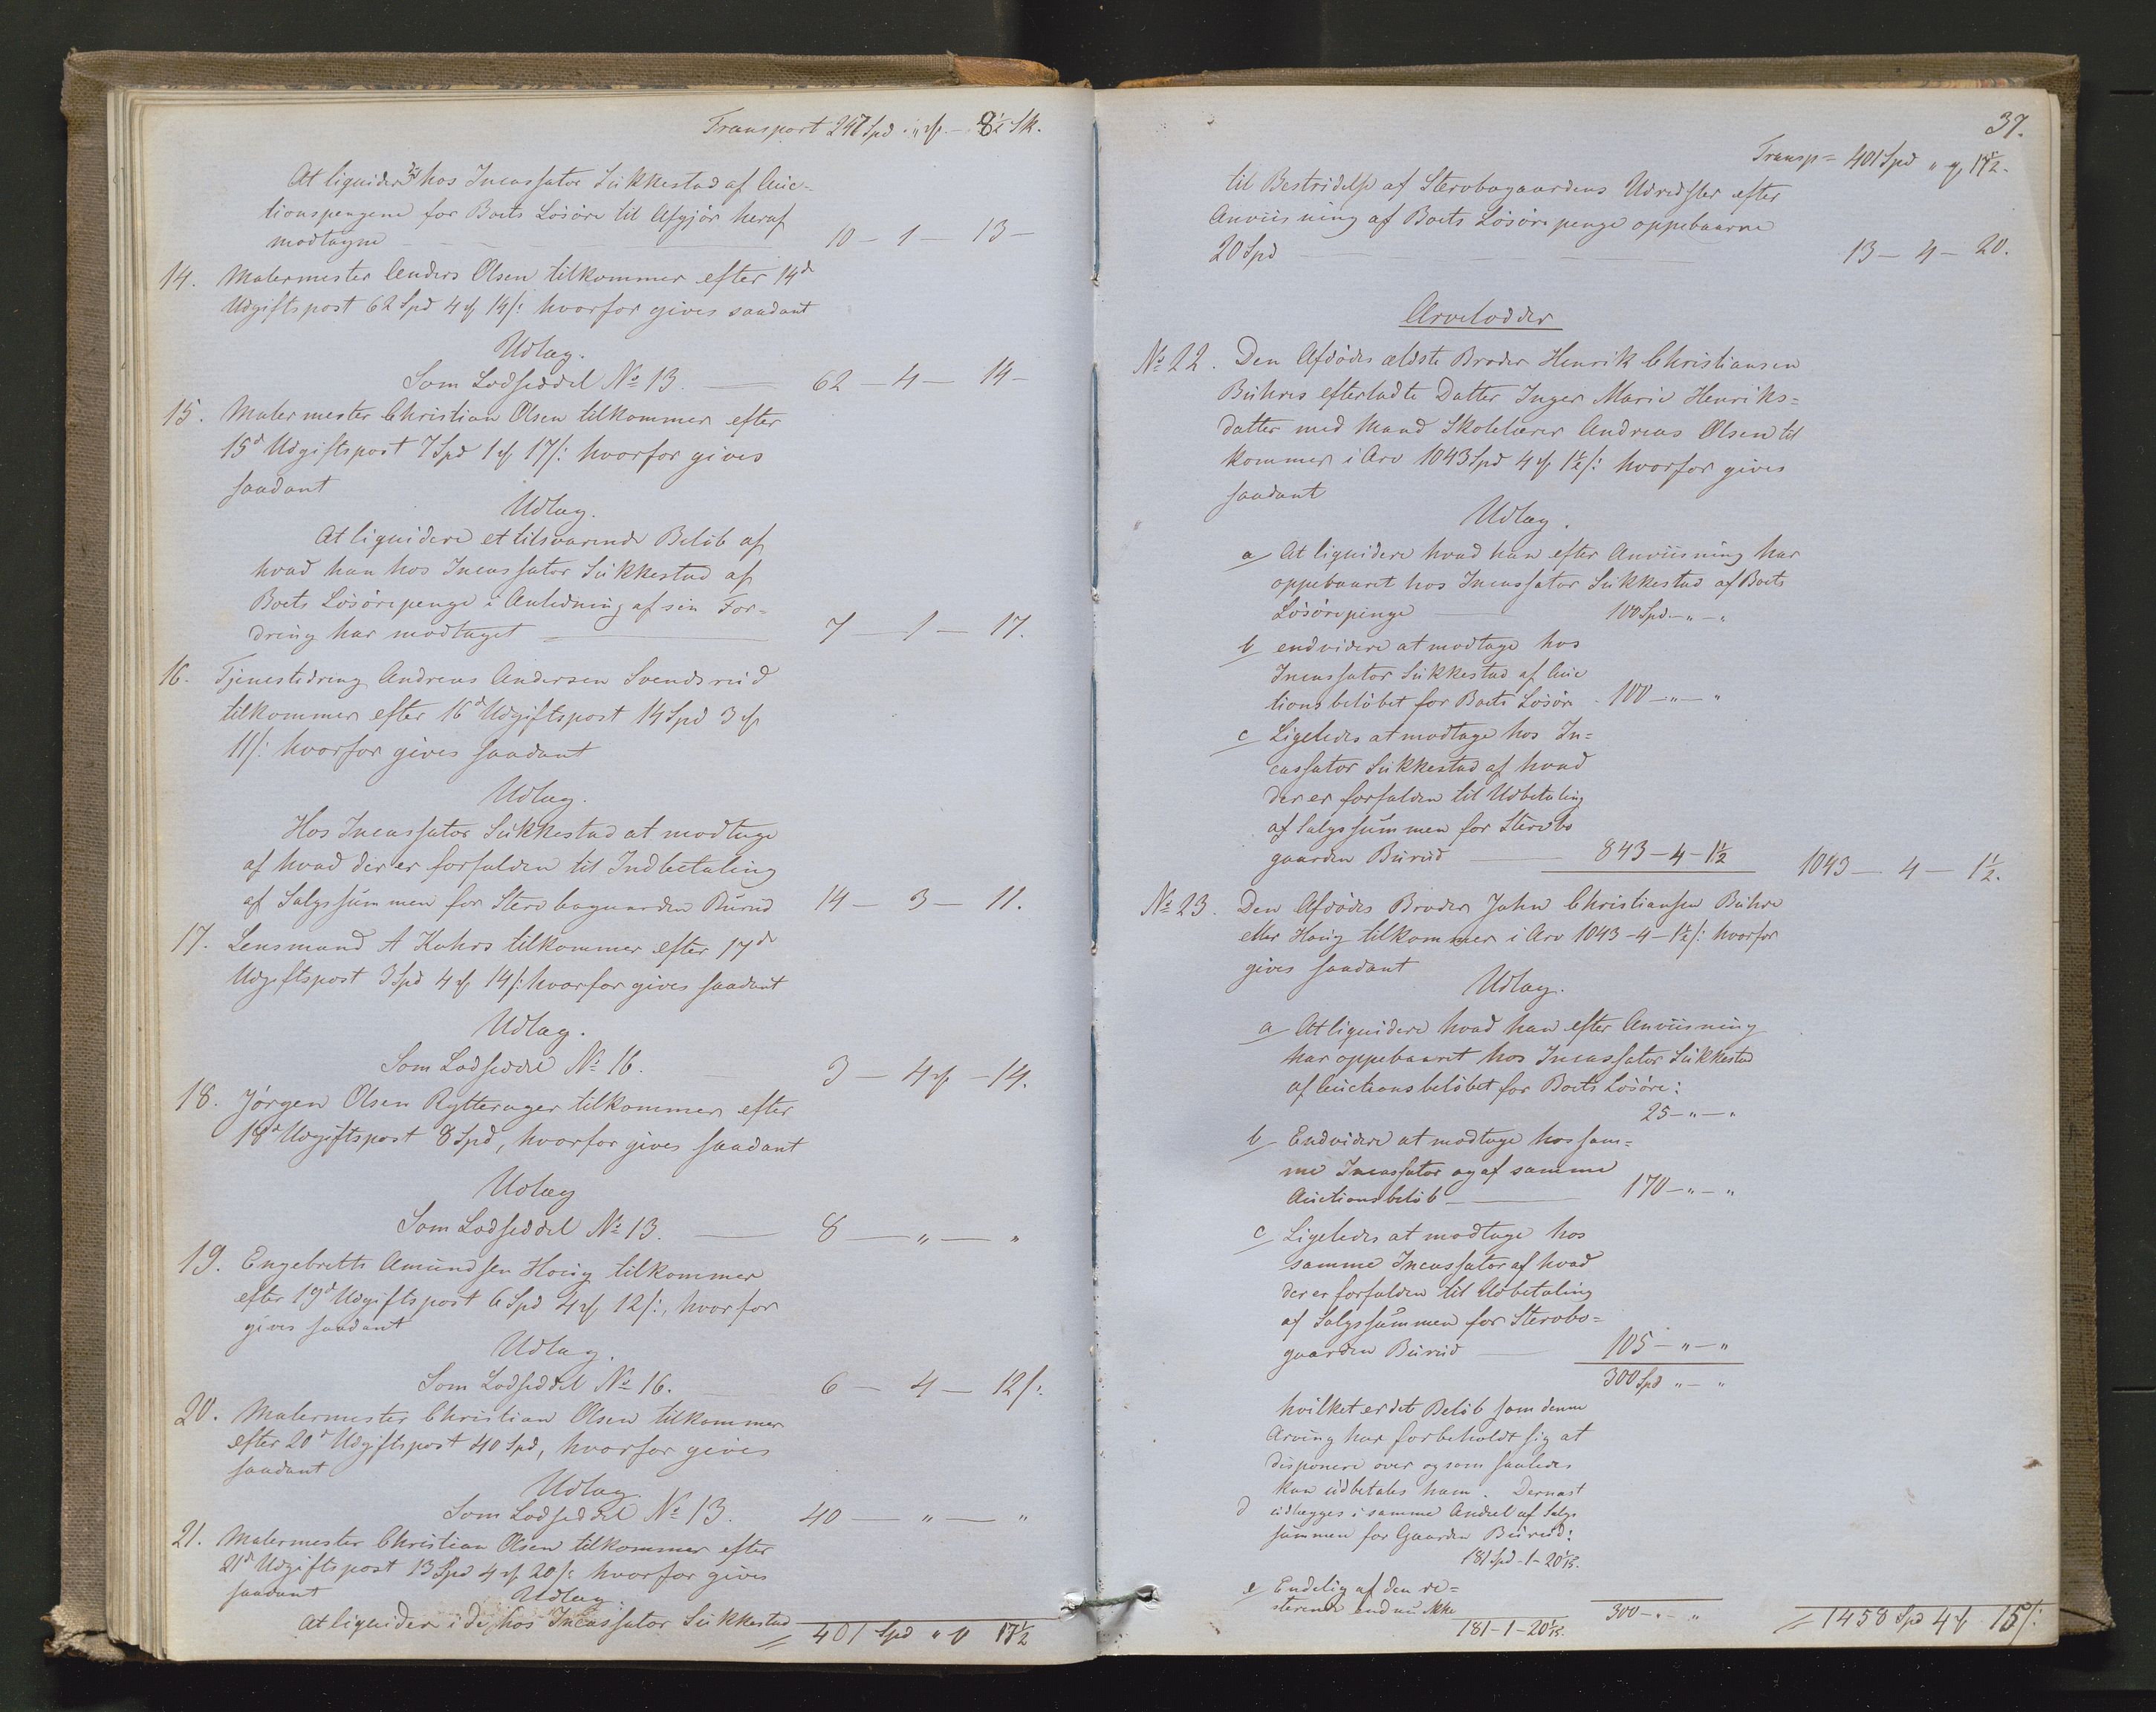 Transport 247 Spd „ ℳ - 8½ Sk.
At liquidere hos Incassator Sükkestad af Auc-
tionspengene for Boets Lösöre til Afgjör heraf
modtagne - 10 - 1 - 13 -
14. Malermester Anders Olsen tilkommer efter 14d
Udgiftspost 62 Spd 4 ℳ 14 /: hvorfor gives saadant
Udlæg.
Som Lodseddel No 13. 62 - 4 - 14 -
15. Malermester Christian Olsen tilkommer efter
15d Udgiftspost 7 Spd 1 ℳ 17 /: hvorfor gives
saadant
Udlæg.
At liquidere et tilsvarende Belöb af
hvad han hos Incassator Sükkestad af
Boets Lösörepenge i Anledning af sin For-
dring har modtaget 7 - 1 - 17.
16. Tjenestedreng Andreas Andersen Svendsrud
tilkommer efter 16d Udgiftspost 14 Spd 3 ℳ
11 /: hvorfor gives saadant
Udlæg.
Hos Incassator Sükkestad at modtage
af hvad der er forfalden til Indbetaling
af Salgssummen for Stervbogaarden Burud 14 - 3 - 11.
17. Lensmand A Kahrs tilkommer efter 17d
Udgiftspost 3 Spd 4 ℳ 14 /: hvorfor gives saadant
Udlæg.
Som Lodseddel No 16. 3 - 4 ℳ - 14.
18. Jörgen Olsen Rytterager tilkommer efter
18d Udgiftspost 8 Spd, hvorfor gives saadant
Udlæg
Som Lodseddel No 13. 8 - „ - „
19. Engebreth Amundsen Houg tilkommer
efter 19d Udgiftspost 6 Spd 4 ℳ 12 /:, hvorfor
gives saadant
Udlæg.
Som Lodseddel No 16. 6 - 4 - 12 /:
20. Malermester Christian Olsen tilkommer
efter 20d Udgiftspost 40 Spd, hvorfor gives
saadant
Udlæg.
Som Lodseddel No 13. 40 - „ - „
21. Malermester Christian Olsen tilkommer efter
21d Udgiftspost 13 Spd 4 ℳ 20 /: hvorfor gives
saadant
Udlæg.
At liquidere i de hos Incassator Sükkestad
= 401 Spd „ ℳ 17½
37.
Transp = 401 Spd „ ℳ 17½.
til Bestridelse af Stervbogaardens Udredsler efter
Anviisning af Boets Lösörepenge oppebaarne
20 Spd 13 - 4 - 20.
Arvelodder
No 22. Den Afdödes ældste Broder Henrik Christiansen
Bühres efterladte Datter Inger Marie Henriks-
datter med Mand Skolelærer Andreas Olsen til
kommer i Arv 1043 Spd 4 ℳ 1½ /: hvorfor gives
saadant
Udlæg.
a At liquidere hvad han efter Anviisning har
oppebaaret hos Incassator Sükkestad af Boets
Lösörepenge 100 Spd - „ - „
b endvidere at modtage hos
Incassator Sükkestad af Auc
tionsbelöbet for Boets Lösöre 100 - „ - „
c Ligeledes at modtage hos In-
cassator Sükkestad af hvad
der er forfalden til Udbetaling
af Salgssummen for Stervbo
gaarden Burud 843 - 4 - 1½ 1043 - 4 - 1½.
No 23. Den Afdödes Broder John Christiansen Bühre
eller Houg tilkommer i Arv 1043 - 4 - 1½ /: hvorfor
gives saadant
Udlæg.
a At liquidere hvad han efter Anviisning
har oppebaaret hos Incassator Sükkestad
af Auctionsbelöbet for Boets Lösöre:
25 - „ - „
b Endvidere at modtage hos sam-
me Incassator og af samme
Auctionsbelöb 170 - „ - „
c Ligeledes at modtage hos
samme Incassator af hvad
der er forfalden til Udbetaling
af Salgssummen for Stervbo-
gaarden Burud 105 - „ - „
300 Spd „ - „
hvilket er det Belöb som denne
Arving har forbeholdt sig at
disponere over og som saaledes
kan udbetales ham. Dernæst
d udlægges i samme Andel af Salgs
summen for Gaarden Burud:
181 Spd - 1 - 20
e Endelig af den re-
sterende endnu ikke
181 - 1 - 20 300 - „ - „ = 1458 Spd 4 ℳ 15 /: